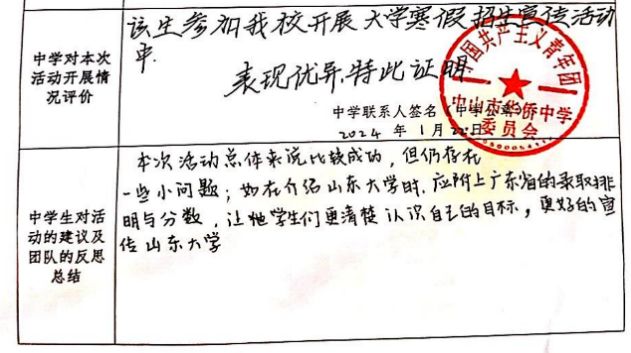 中学对本次
活动开展情
况评价
该生参加我校开展大学寒假招生宣传活动
中.
表现优异.特此证明
中学联系人签名(中学公章)
2024 年 1月22日
中国共产主义青年团
中山市华侨中学
委员会
中学生对活
动的建议及
团队的反思
总结
本次活动总体来说比较成功,但仍存在
一些小问题;如在介绍山东大学时,应附上广东省的录取排
明与分数,让他学生们更清楚认识自己的目标,更好的宣
传山东大学